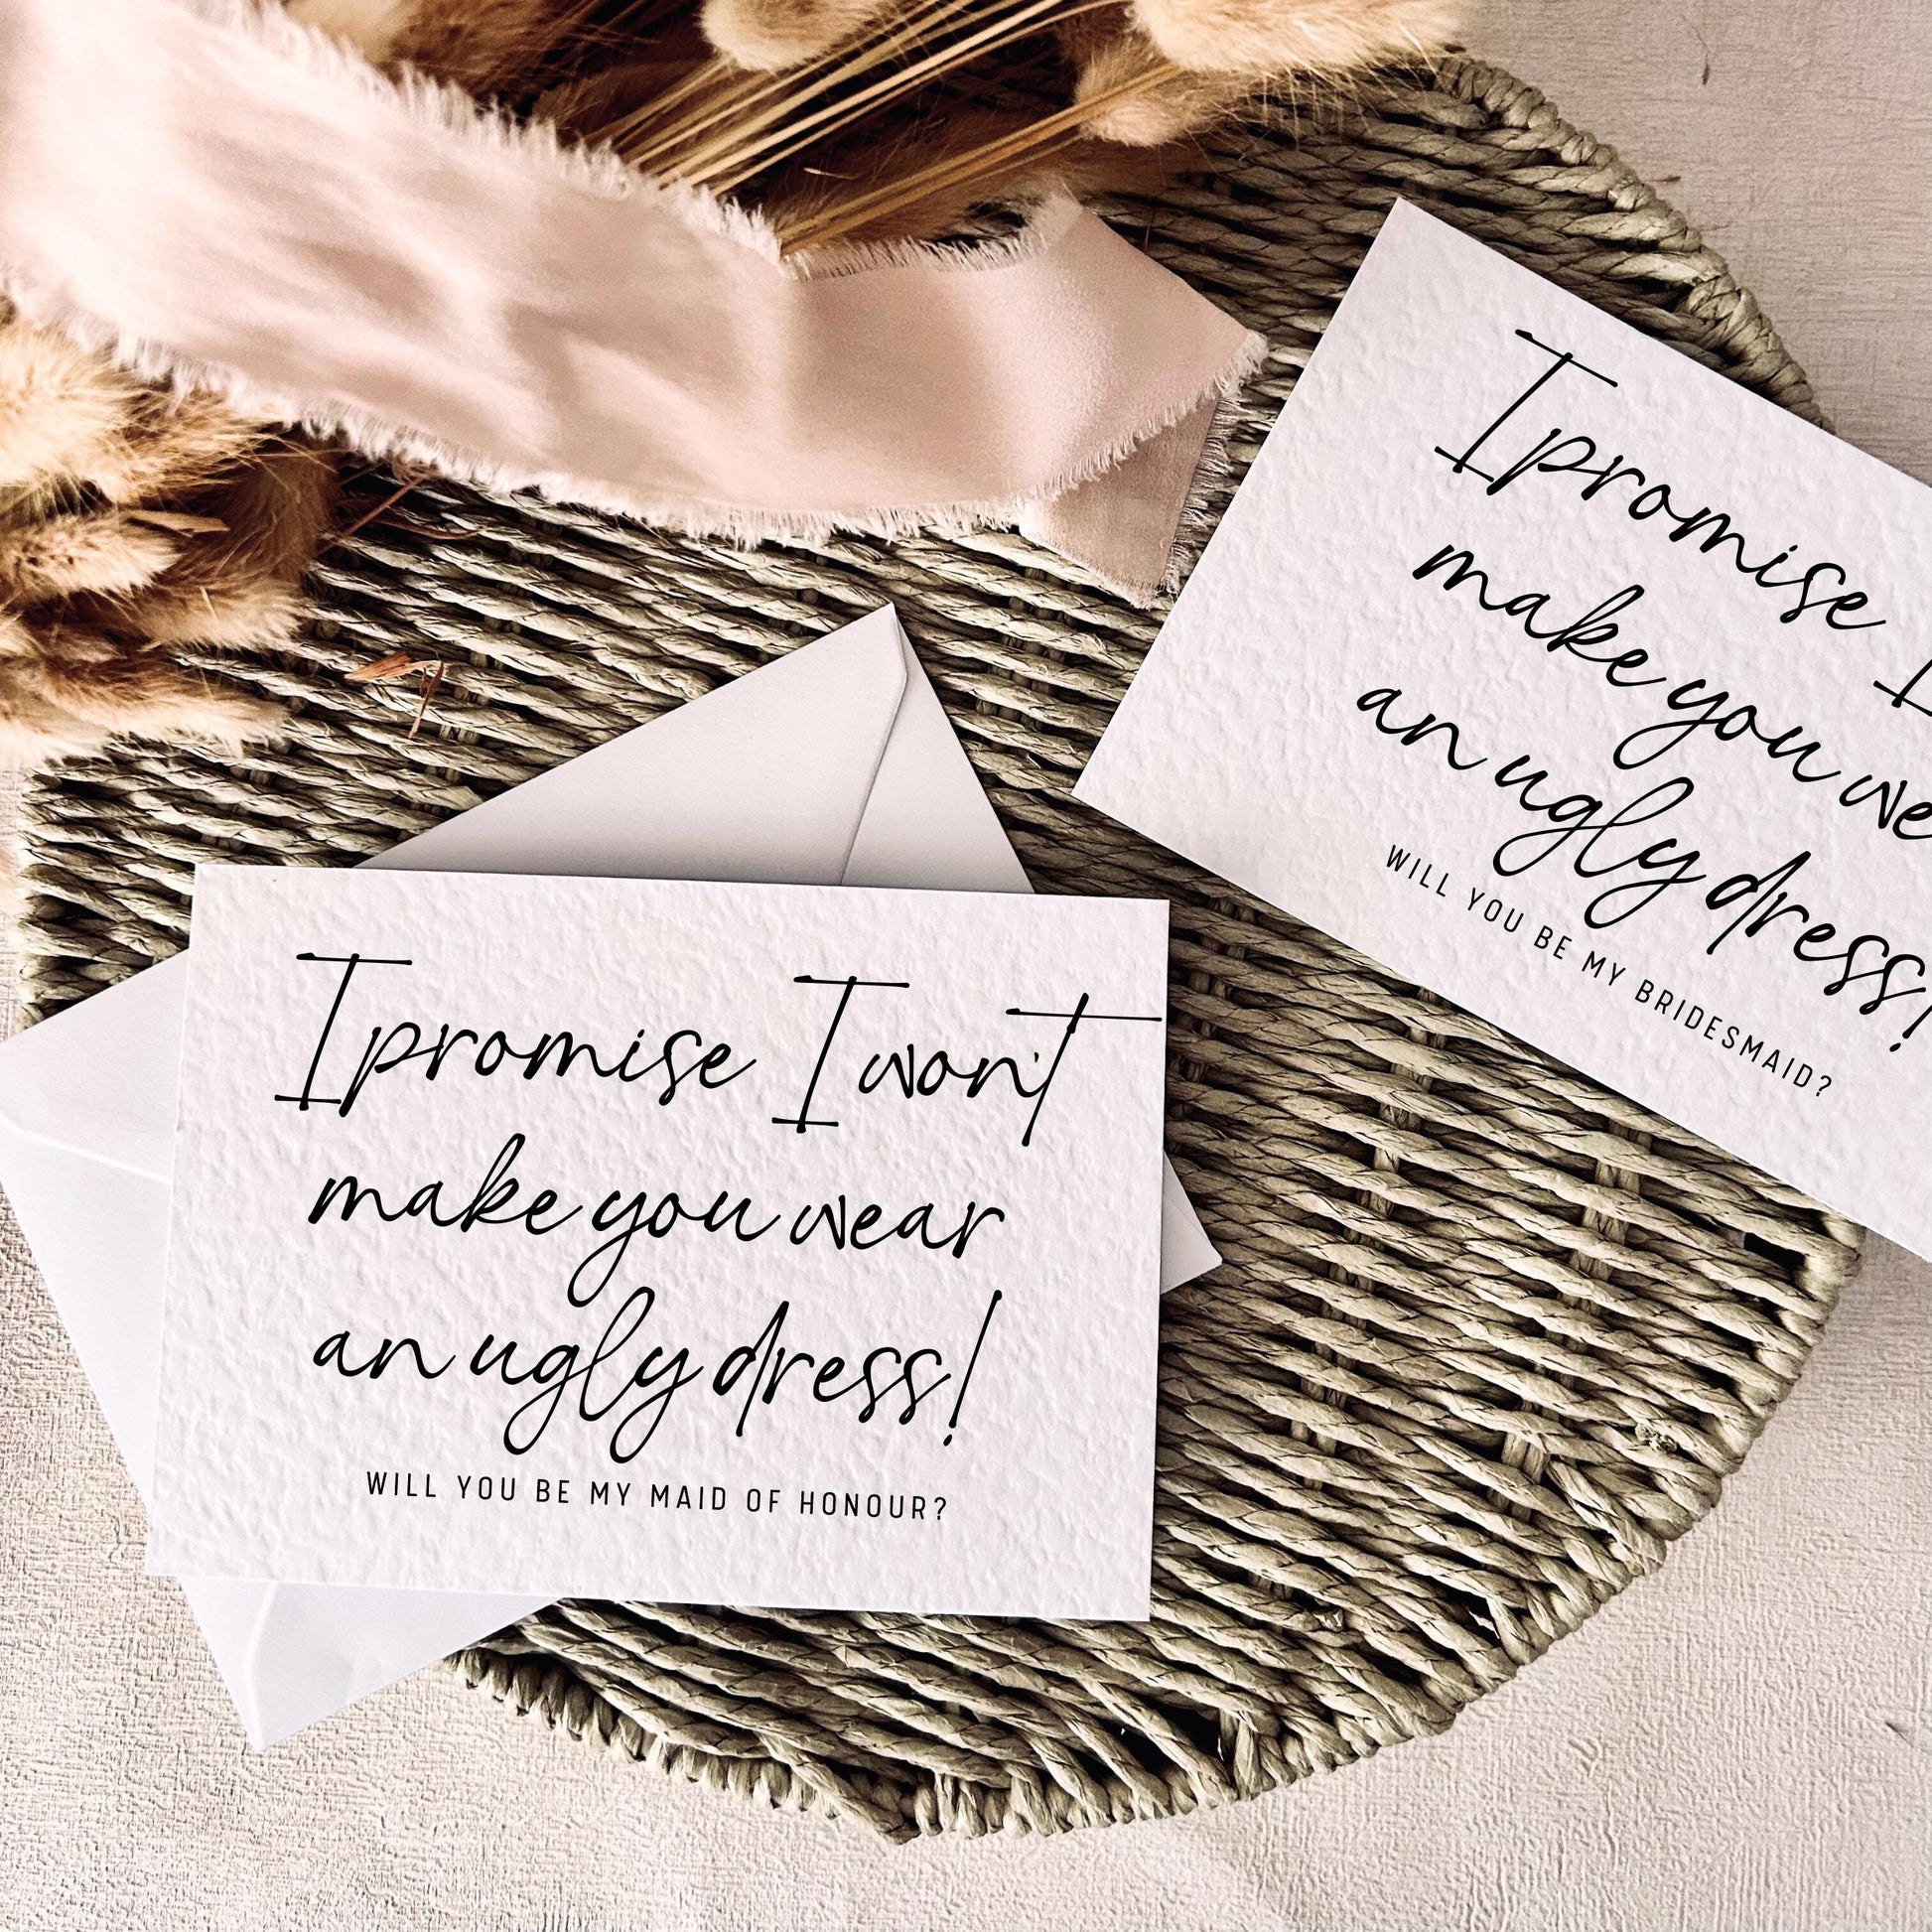 I promise I won't
make you wear
an ugly dress!
WILL YOU BE MY MAID OF HONOUR?
I promise
make you
an ugly dress!
WILL YOU BE MY BRIDESMAID?